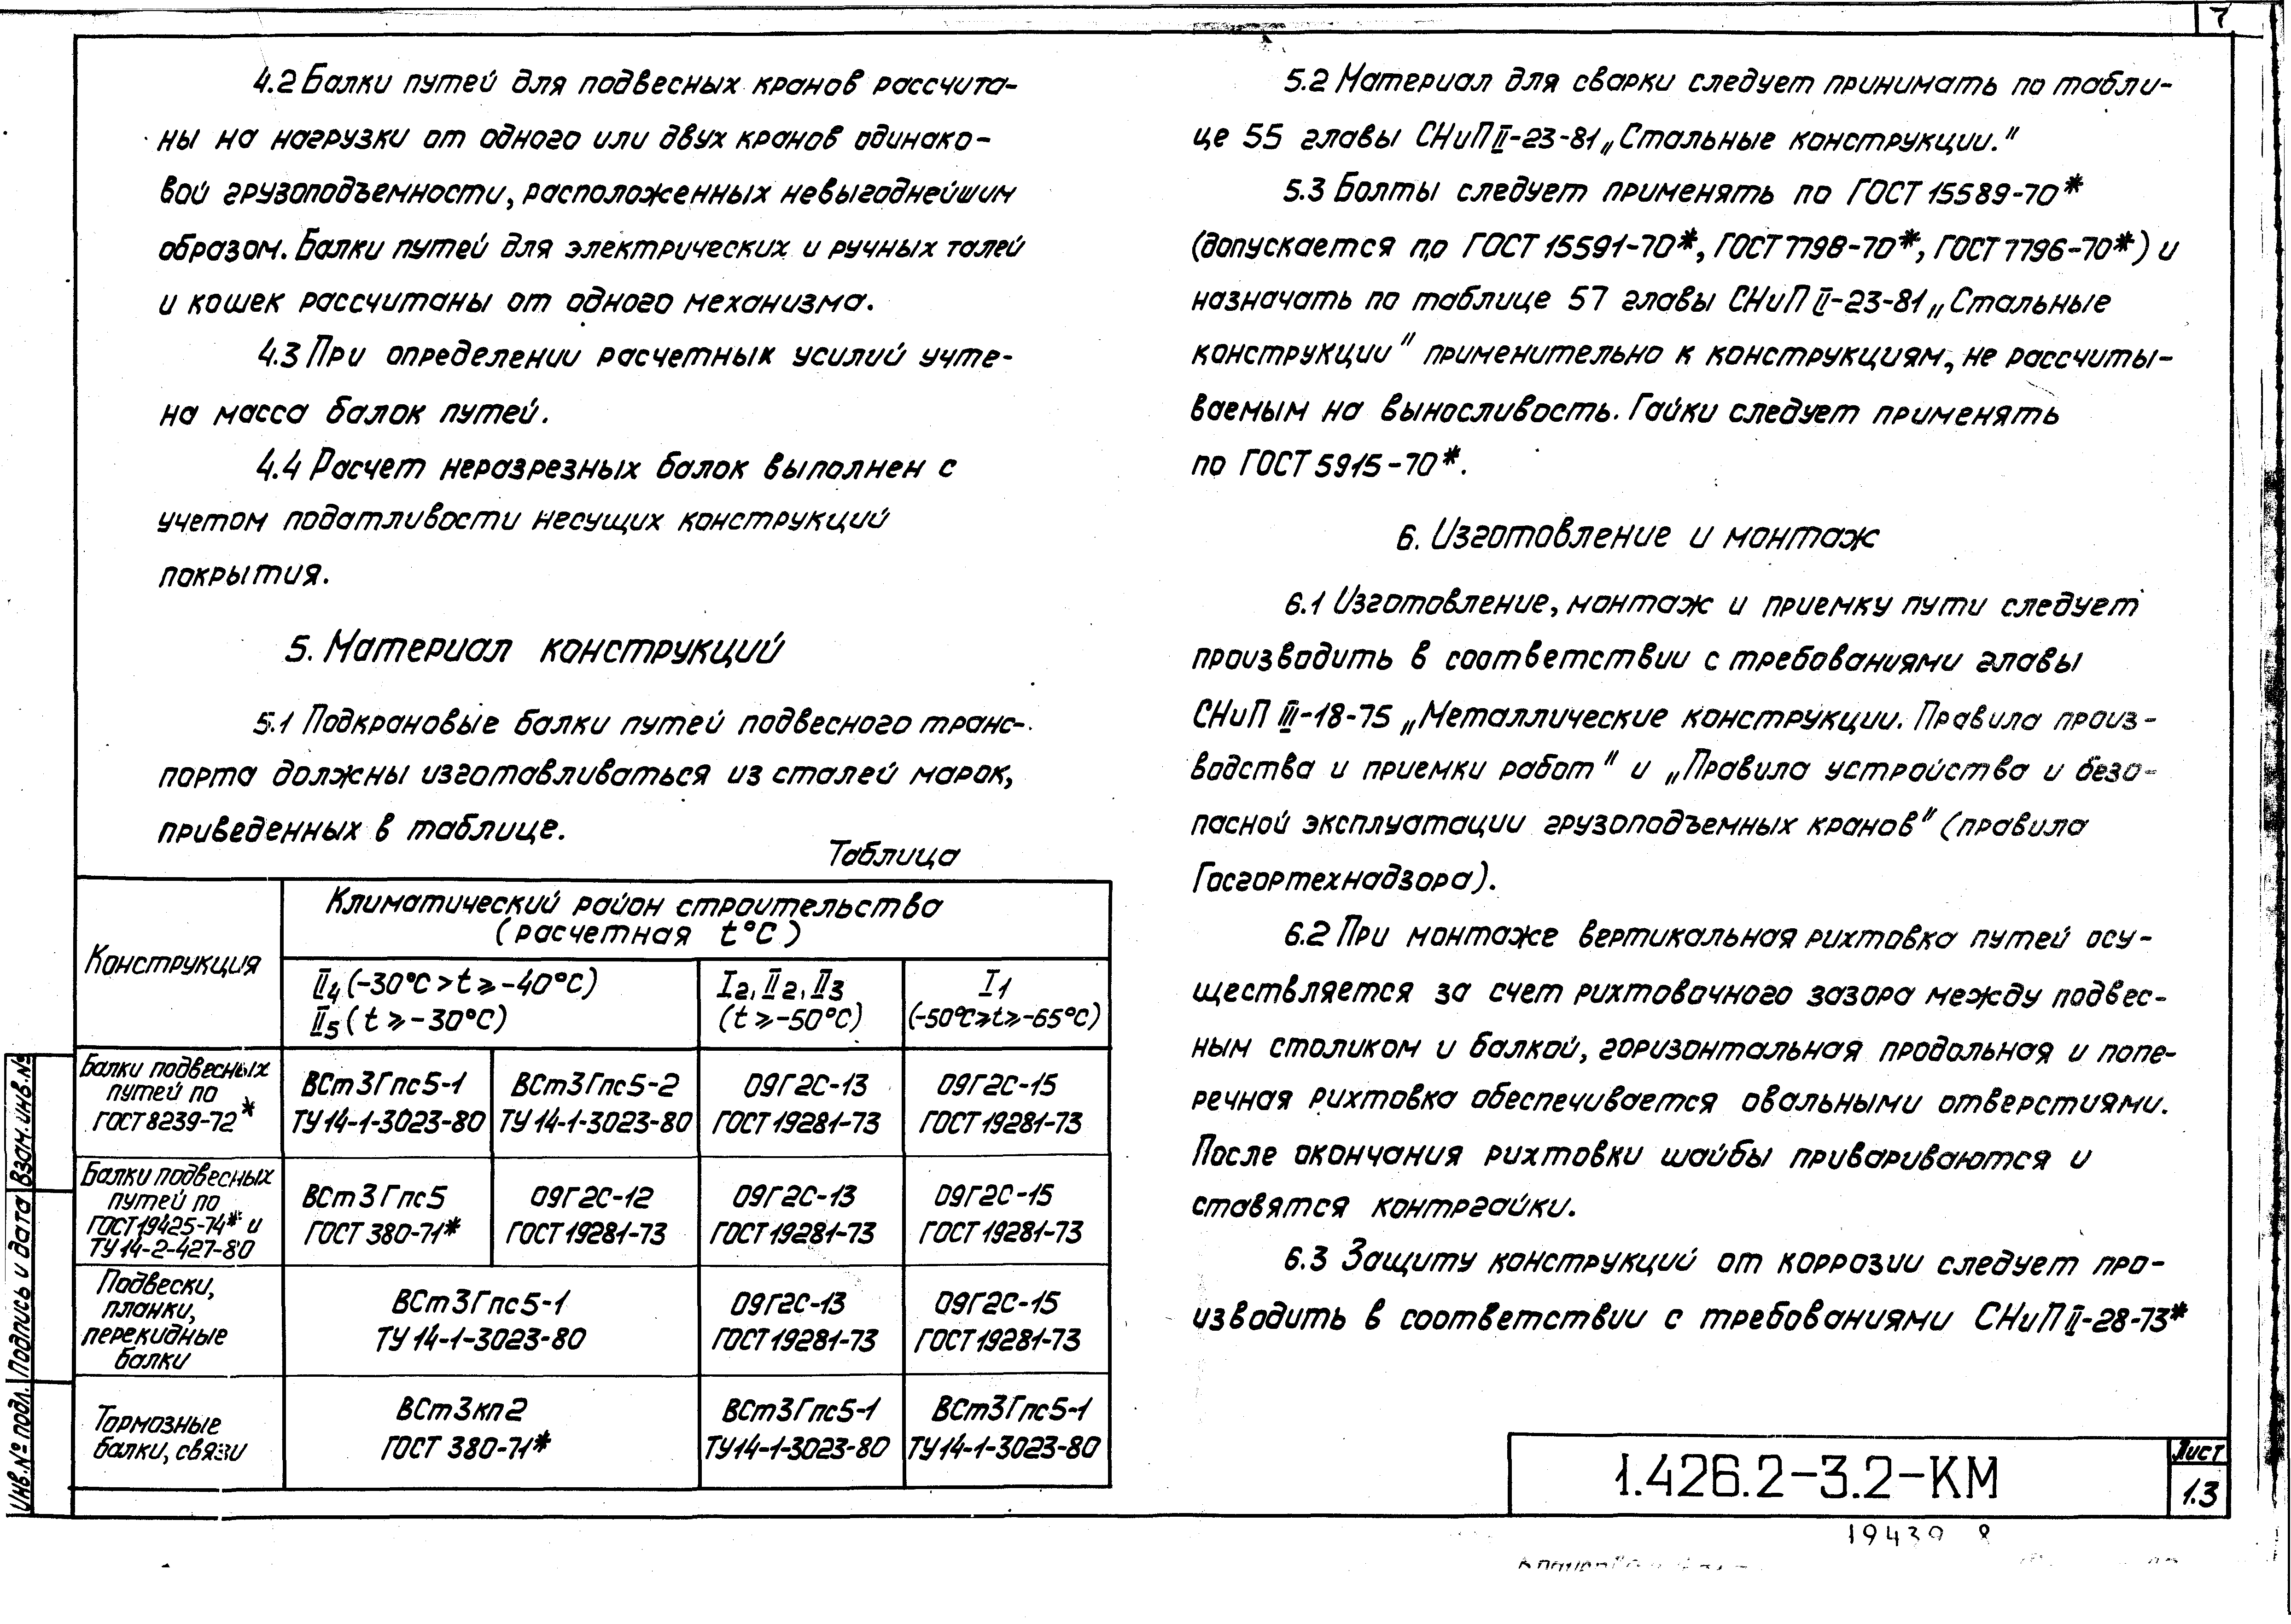 7
4.2 Балки путей для подвесных кранов рассчита-
ны на нагрузки от одного или двух кранов одинако-
вой грузоподъемности, расположенных невыгоднейшим
образом. Балки путей для электрических и ручных талей
и кошек рассчитаны от одного механизма.
4.3 При определении расчетных усилий учте-
на масса балок путей.
4.4 Расчет неразрезных балок выполнен с
учетом податливости несущих конструкций
покрытия.
5. Материал конструкций
5.1 Подкрановые балки путей подвесного транс-
порта должны изготавливаться из сталей марок,
приведенных в таблице.
Таблица
Конструкция
Климатический район строительства
(расчетная t°C)
II4 (-30°C > t ⩾ -40°C)
II5 (t ⩾ -30°C)
I2, II2, II3
(t ⩾ -50°C)
I1
(-50°C ⩾ t ⩾ -65°C)
Балки подвесных
путей по
ГОСТ 8239-72*
ВСт3Гпс5-1
ТУ 14-1-3023-80
ВСт3Гпс5-2
ТУ 14-1-3023-80
09Г2С-13
ГОСТ 19281-73
09Г2С-15
ГОСТ 19281-73
Балки подвесных
путей по
ГОСТ 19425-74* и
ТУ 14-2-427-80
ВСт3Гпс5
ГОСТ 380-71*
09Г2С-12
ГОСТ 19281-73
09Г2С-13
ГОСТ 19281-73
09Г2С-15
ГОСТ 19281-73
Подвески,
планки,
перекидные
балки
ВСт3Гпс5-1
ТУ 14-1-3023-80
09Г2С-13
ГОСТ 19281-73
09Г2С-15
ГОСТ 19281-73
Тормозные
балки, связи
ВСт3кп2
ГОСТ 380-71*
ВСт3Гпс5-1
ТУ 14-1-3023-80
ВСт3Гпс5-1
ТУ 14-1-3023-80
5.2 Материал для сварки следует принимать по табли-
це 55 главы СНиП II-23-81 „Стальные конструкции."
5.3 Болты следует применять по ГОСТ 15589-70*
(допускается по ГОСТ 15591-70*, ГОСТ 7798-70*, ГОСТ 7796-70*) и
назначать по таблице 57 главы СНиП II-23-81 „Стальные
конструкции" применительно к конструкциям, не рассчиты-
ваемым на выносливость. Гайки следует применять
по ГОСТ 5915-70*.
6. Изготовление и монтаж
6.1 Изготовление, монтаж и приемку пути следует
производить в соответствии с требованиями главы
СНиП III-18-75 „Металлические конструкции. Правила произ-
водства и приемки работ" и „Правила устройства и безо-
пасной эксплуатации грузоподъемных кранов" (правила
Госгортехнадзора).
6.2 При монтаже вертикальная рихтовка путей осу-
ществляется за счет рихтовочного зазора между подвес-
ным столиком и балкой, горизонтальная продольная и попе-
речная рихтовка обеспечивается овальными отверстиями.
После окончания рихтовки шайбы привариваются и
ставятся контргайки.
6.3 Защиту конструкций от коррозии следует про-
изводить в соответствии с требованиями СНиП II-28-73*
Инв.№ подл. Подпись и дата Взам.инв.№
1.426.2-3.2-КМ
Лист
1.3
19430 8